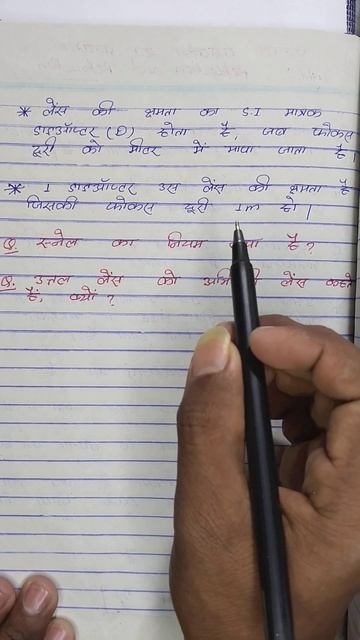 * लेंस की क्षमता का S.I मात्रक
डाइऑप्टर (D) होता है, जब फोकस
दूरी को मीटर में मापा जाता है
* 1 डाइऑप्टर उस लेंस की क्षमता है
जिसकी फोकस दूरी 1m हो |
Q. स्नेल का नियम क्या है?
Q. उत्तल लेंस को लेंस कहते
हैं, क्यों ?